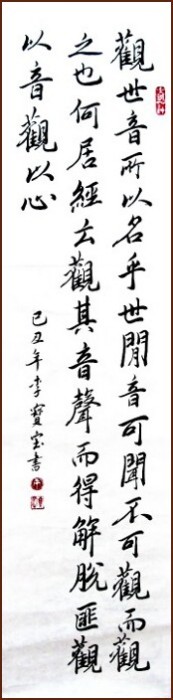 觀世音所以名乎世間音可聞不可觀而觀
之也何居經云觀其音聲而得解脫匪觀
以音觀以心
己丑年李寶宝書